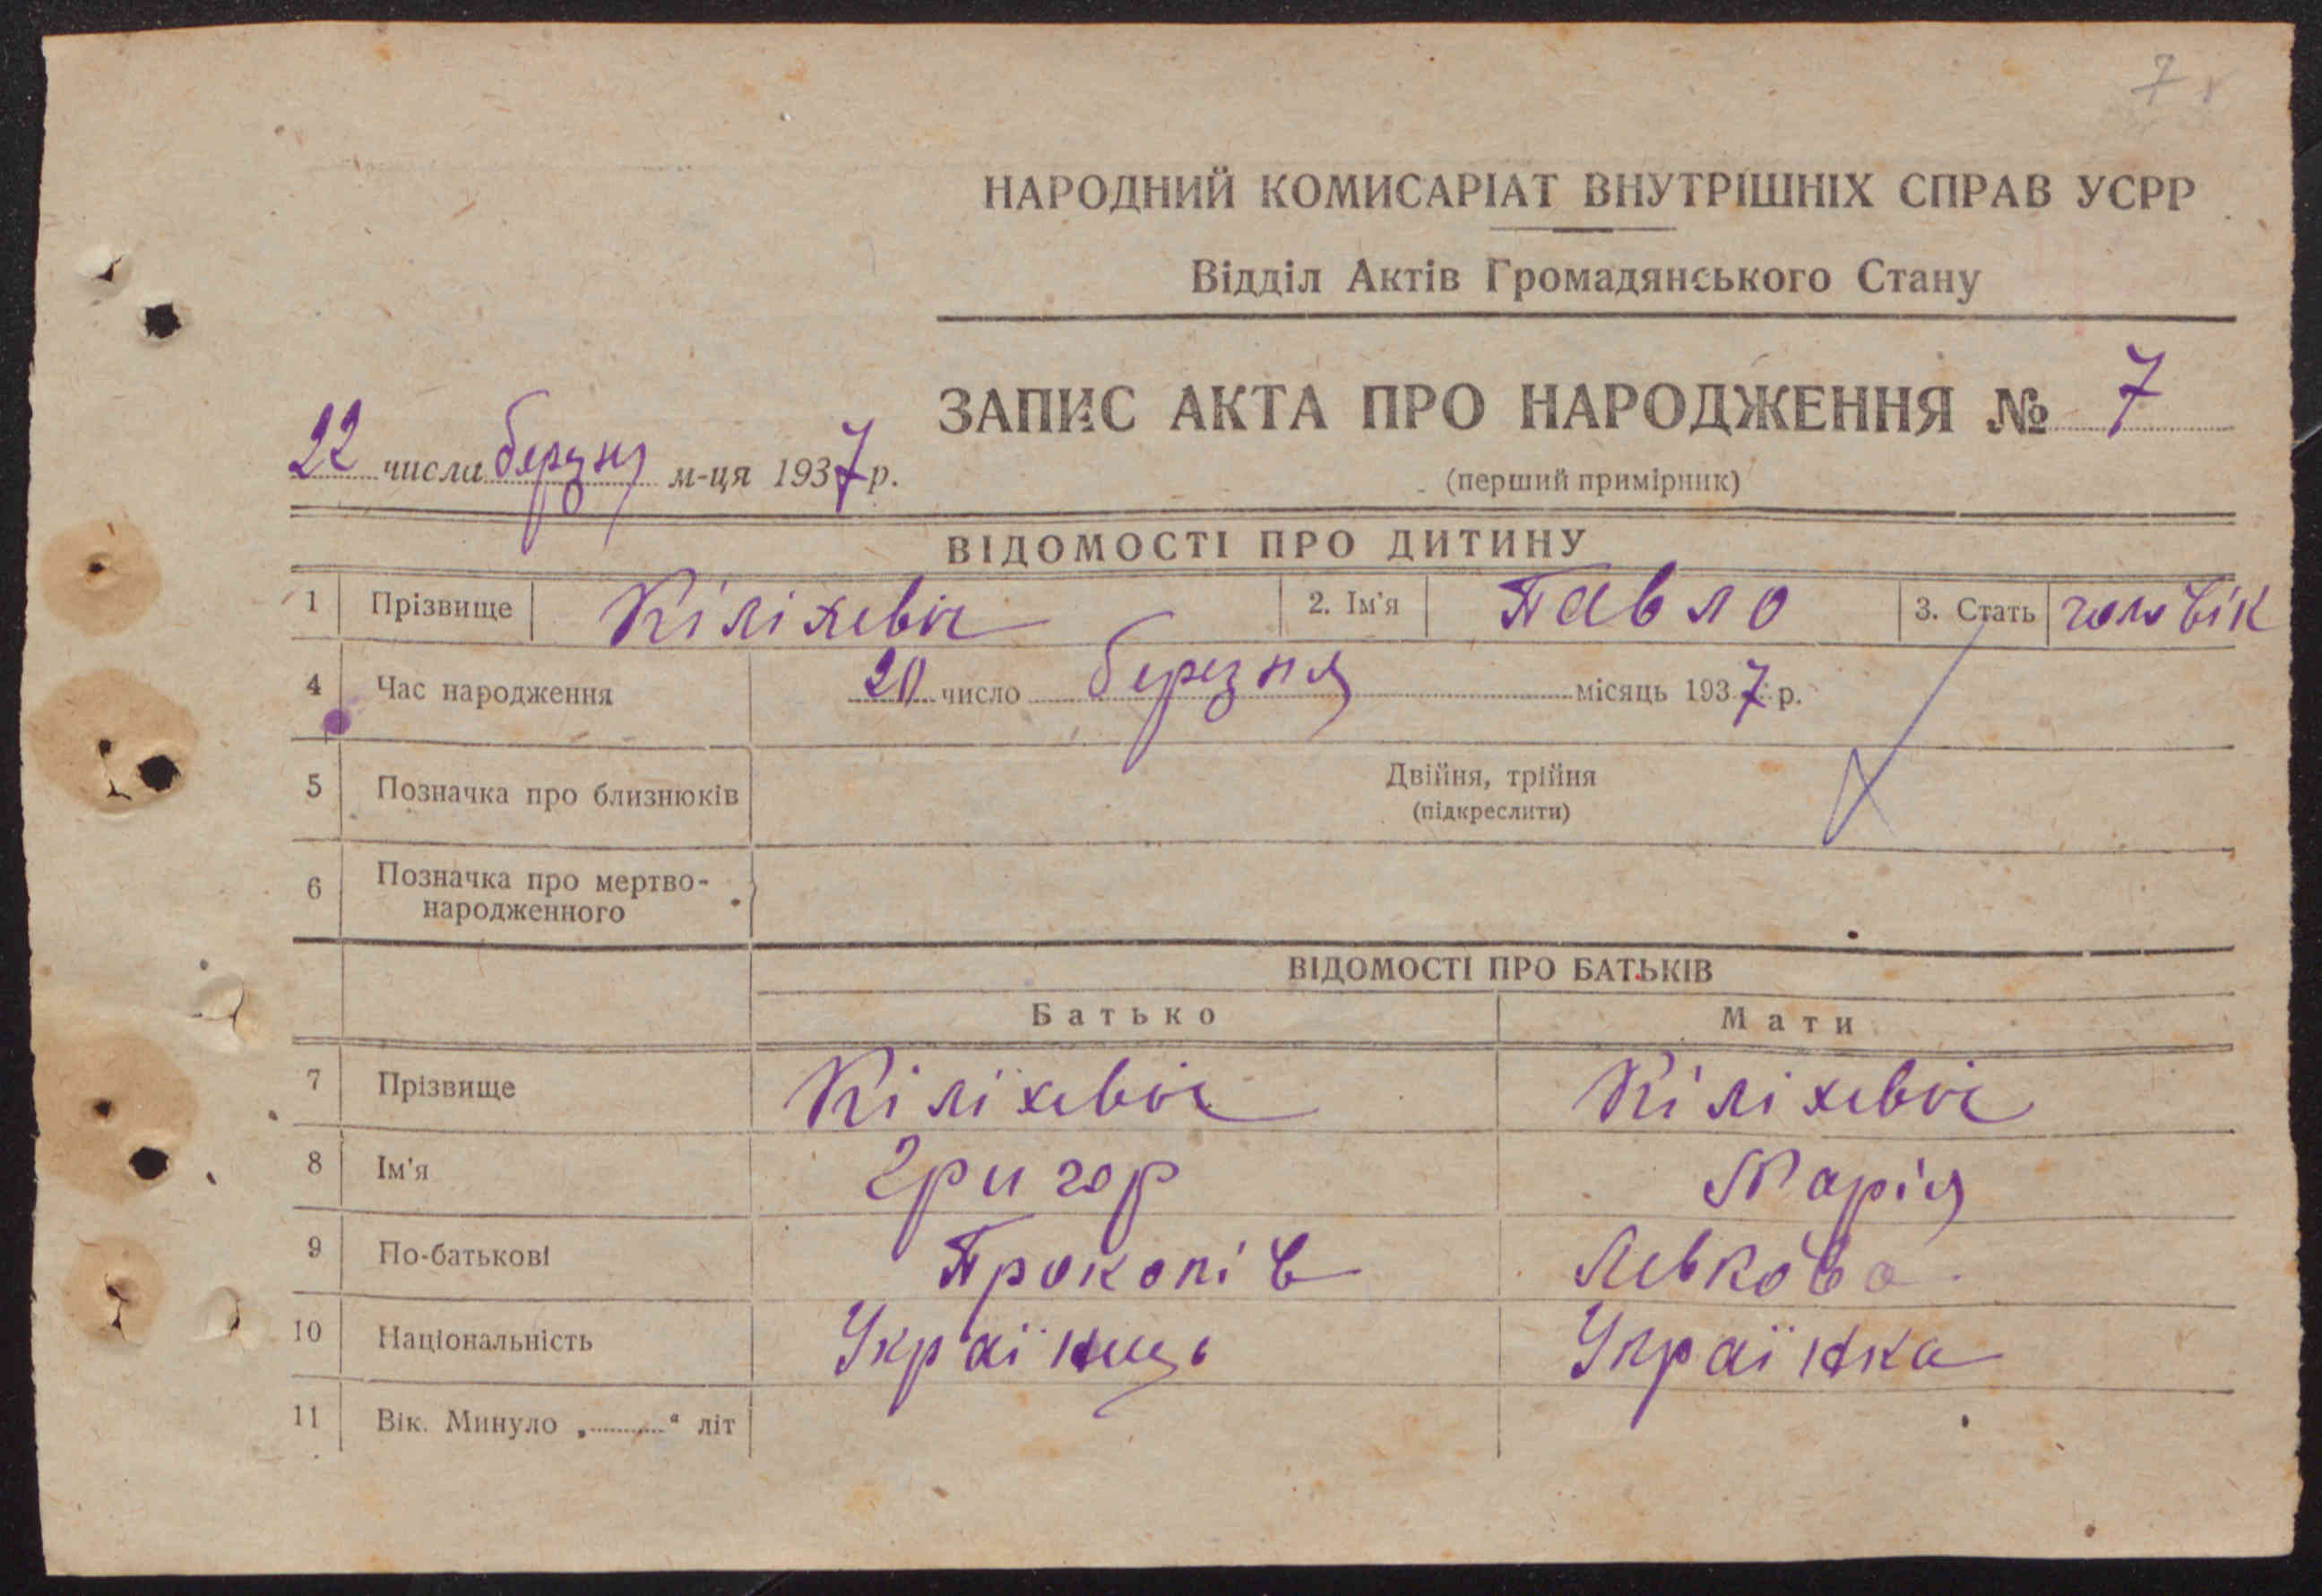 7
НАРОДНИЙ КОМИСАРІАТ ВНУТРІШНІХ СПРАВ УСРР
Відділ Актів Громадянського Стану
ЗАПИС АКТА ПРО НАРОДЖЕННЯ № 7
22 числа березня м-ця 1937 р.
(перший примірник)
ВІДОМОСТІ ПРО ДИТИНУ
1 Прізвище Кіліхевіч 2. Ім'я Павло 3. Стать чоловік
4 Час народження 20 число березня місяць 1937 р.
5 Позначка про близнюків Двійня, трійня
(підкреслити)
6 Позначка про мертво-
народженного
ВІДОМОСТІ ПРО БАТЬКІВ
Батько Мати
7 Прізвище Кіліхевіч Кіліхевіч
8 Ім'я Григор Марія
9 По-батькові Прокопів Левкова
10 Національність Українець Українка
11 Вік. Минуло „..........“ літ